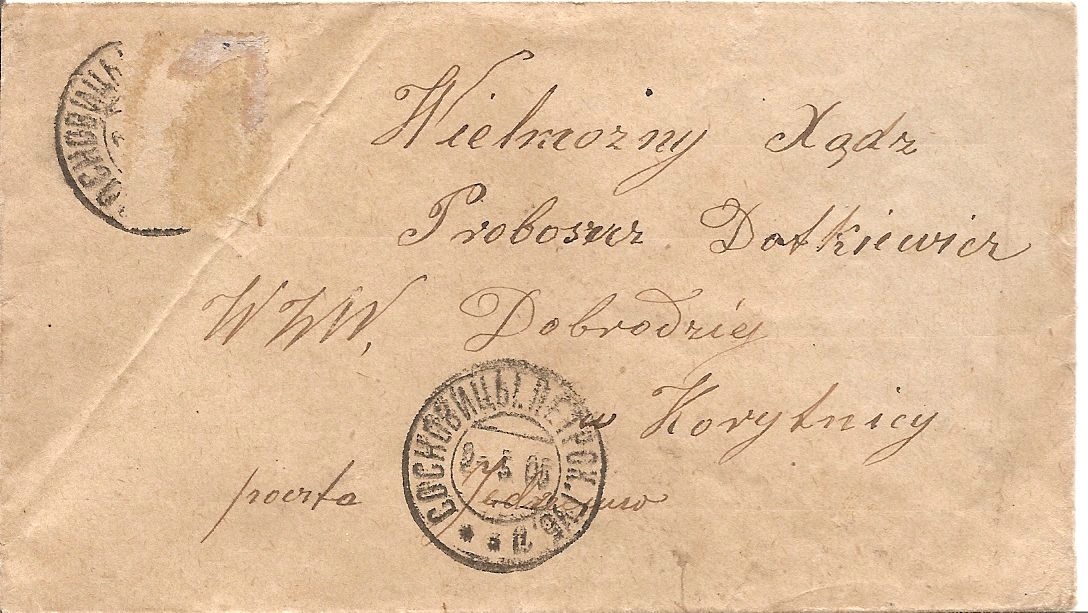 Wielmożny Xądz
Proboszcz Dotkiewicz
WW, Dobrodziej
w Korytnicy
poczta
СОСНОВИЦЫ, ПЕТРОК. ГУБ.
5 05
СОСНОВИЦЫ